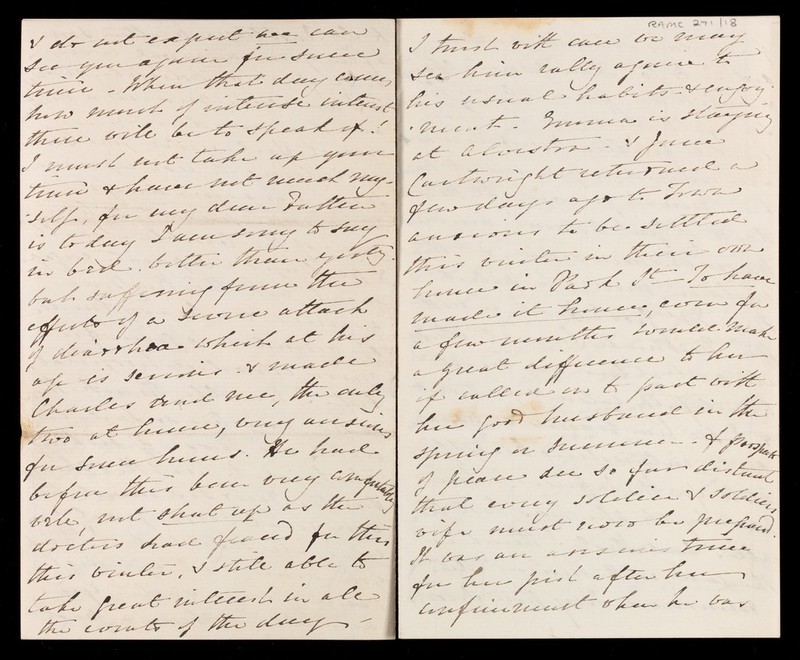 & do not expect we can
see you again for some
time - When that day comes,
how much of intense interest
there will be to speak of!
I must not take up your
time & have not much my-
self, for my dear Father
is today I am sorry to say
in bed. better than yesty.
but suffering from the
effects of a severe attack
of diarrhœa which at his
age is serious. & made
Charles and me, the only
two at home, very anxious
for some hours. He had
before this been very comfortably
well, not shut up as the
doctors had feared for this
this winter, & still able to
take great interest in all
the events of the day -
RAMC 271/18
I trust with care we may
see him rally again to
his usual habits & enjoy-
-ment. Emma is staying
at & June
Cartwright returned a
few days ago to Town
anxious to be settled
this winter in their own
house in Park St - To have
made it home, even for
a few months would make
a great difference to her
if called on to part with
her good husband in the
spring or summer - & prospects
of peace are so far distant
that every soldier & soldiers
wife must now be prepared.
It was an anxious time
for her just after her
confinement when he was